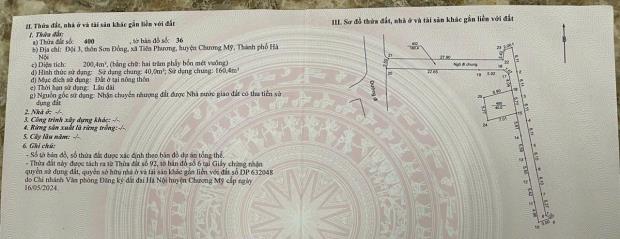 II. Thửa đất, nhà ở và tài sản khác gắn liền với đất
1. Thửa đất:
a) Thửa đất số: 400 , tờ bản đồ số: 36
b) Địa chỉ: Đội 3, thôn Sơn Đồng, xã Tiên Phương, huyện Chương Mỹ, Thành phố Hà
Nội
c) Diện tích: 200,4m², (bằng chữ: hai trăm phẩy bốn mét vuông)
d) Hình thức sử dụng: Sử dụng chung: 40,0m²; Sử dụng chung: 160,4m²
đ) Mục đích sử dụng: Đất ở tại nông thôn
e) Thời hạn sử dụng: Lâu dài
g) Nguồn gốc sử dụng: Nhận chuyển nhượng đất được Nhà nước giao đất có thu tiền sử
dụng đất
2. Nhà ở: -/-.
3. Công trình xây dựng khác: -/-.
4. Rừng sản xuất là rừng trồng: -/-.
5. Cây lâu năm: -/-.
6. Ghi chú:
- Số tờ bản đồ, số thửa đất được xác định theo bản đồ dự án tổng thể.
- Thửa đất này được tách ra từ Thửa đất số 92, tờ bản đồ số 6 tại Giấy chứng nhận
quyền sử dụng đất, quyền sở hữu nhà ở và tài sản khác gắn liền với đất số DP 632048
do Chi nhánh Văn phòng Đăng ký đất đai Hà Nội huyện Chương Mỹ cấp ngày
16/05/2024.
III. Sơ đồ thửa đất, nhà ở và tài sản khác gắn liền với đất
27.90
Ngõ đi chung
27.65
Đường đi
21
20
19
23
22
18
25
24
400
7.01